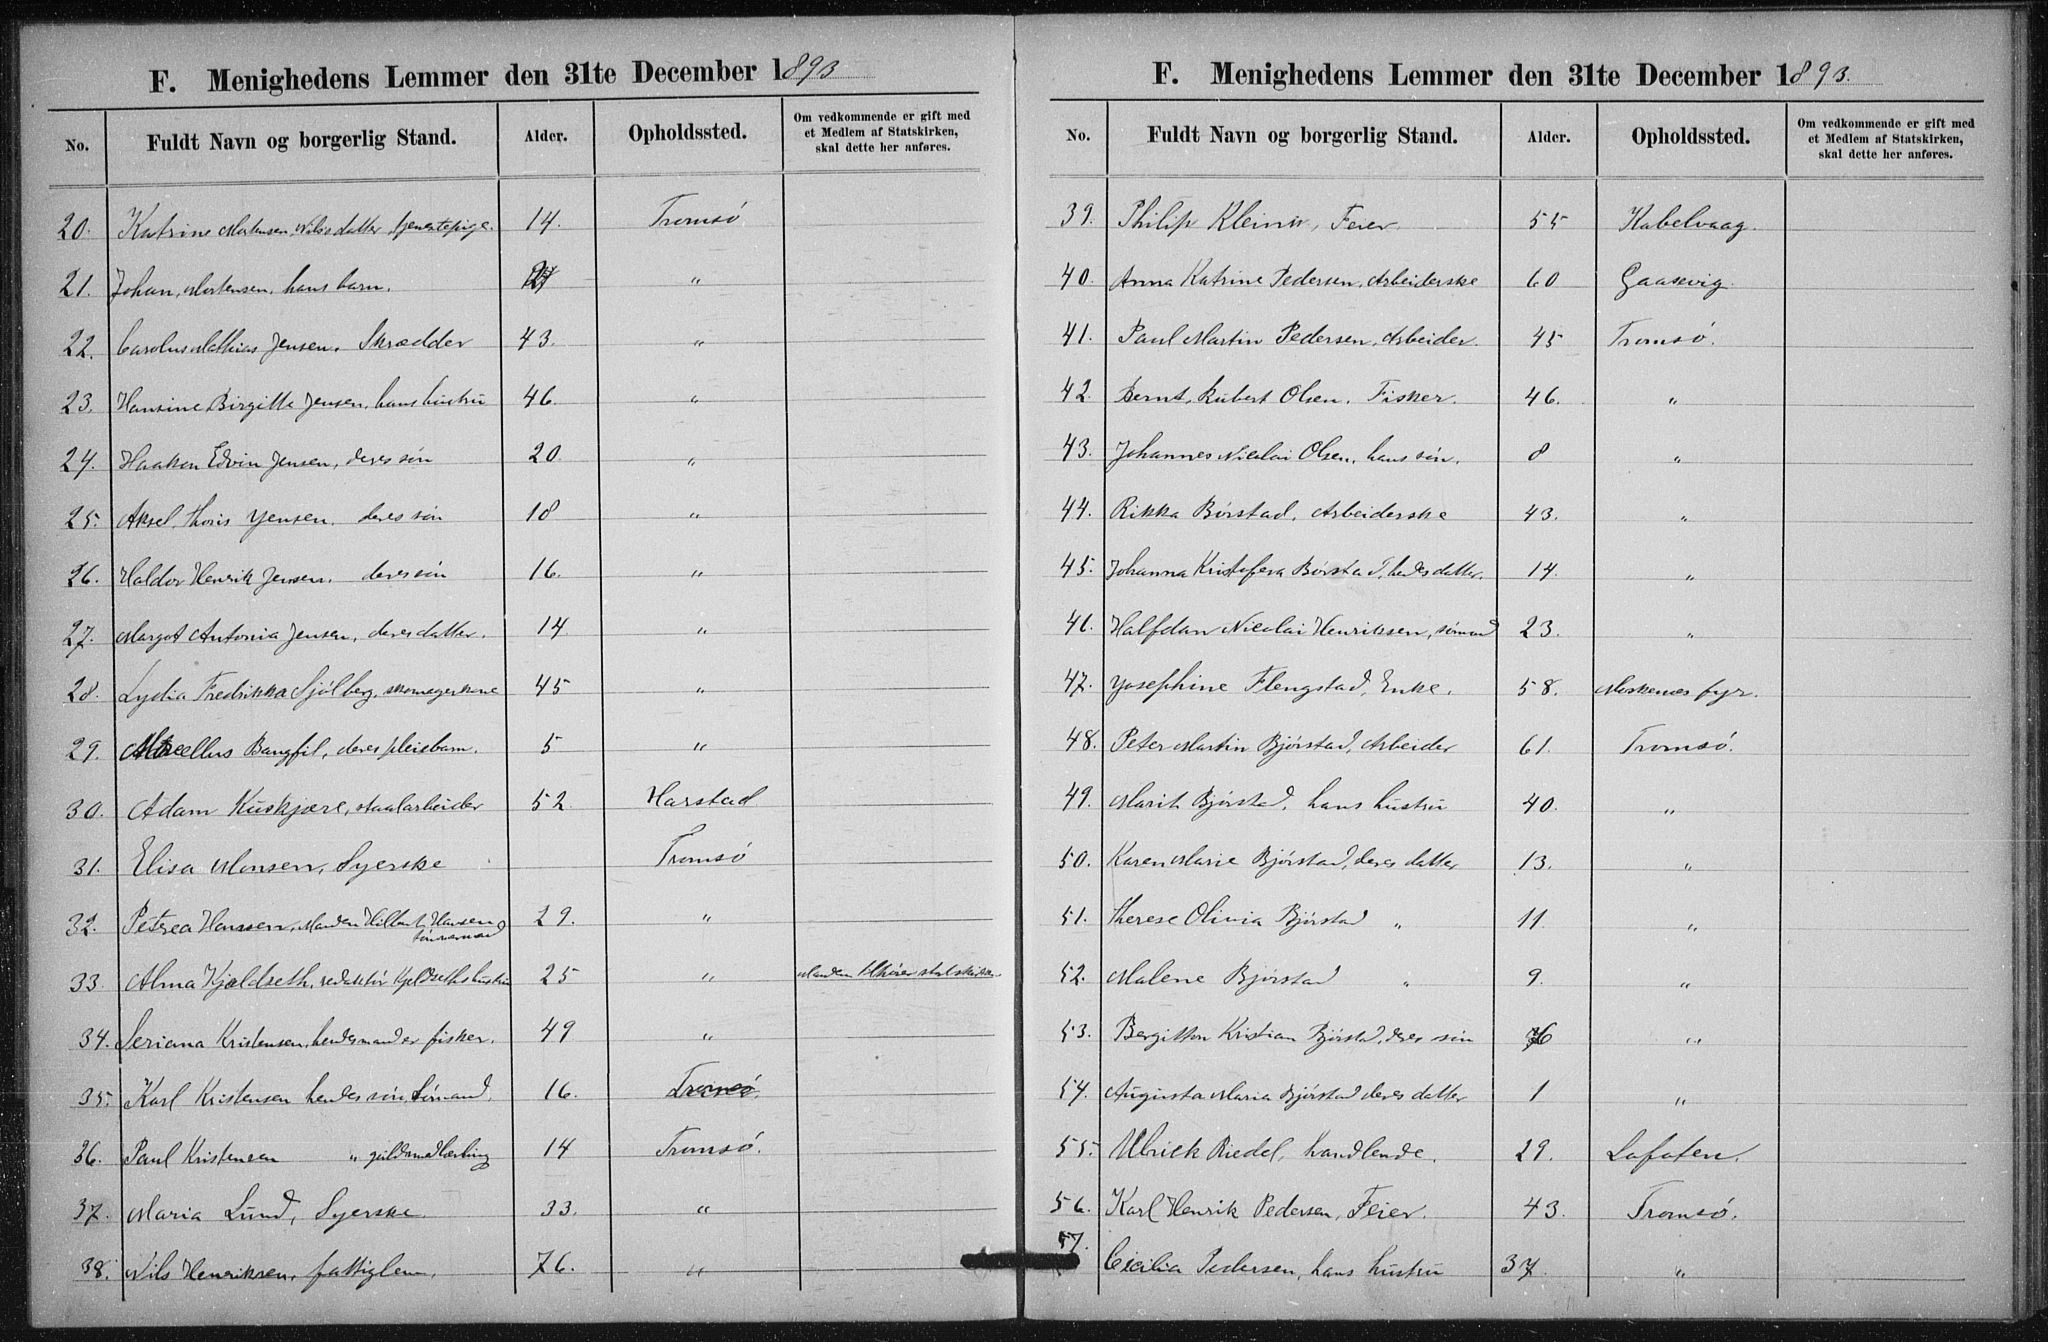 F. Menighedens Lemmer den 31te December 1893
No. Fuldt Navn og borgerlig Stand. Alder. Opholdssted. Om vedkommende er gift med
et Medlem af Statskirken,
skal dette her anføres.
20. Katrine Mortensen, datter, tjenestepige. 14. Tromsö
21. Johan Mortensen, hans barn. "
22. Carolus Mathias Jensen. Skrædder 43. "
23. Hansine Birgitte Jensen, hans hustru 46. "
24. Haakon Edvin Jensen, deres sön 20. "
25. Aksel Thoris Jensen. deres sön 18 "
26. Haldor Henrik Jensen. deres sön 16. "
27. Margot Antonia Jensen, deres datter. 14. "
28. Lydia Fredrikka Sjölberg, skomagerkone 45 "
29. Bangfil, deres pleiebarn. 5 "
30. Adam Kuskjære, staalarbeider 52. Harstad
31. Elisa Monsen, Syerske Tromsö
32. Petrea Hanssen, Manden Hilbert Hansen 29. "
tömmermand
33. Alma Kjeldseth, redaktör Kjeldseths hustru 25 " Manden tilhörer statskirken
34. Seriana Kristensen, hendes mand er fisker. 49 "
35. Karl Kristensen hendes sön, Sömand. 16. Tromsö.
36. Paul Kristensen " guldsmedlærling 14 Tromsö.
37. Maria Lund, Syerske. 33. "
38. Nils Henriksen, fattiglem. 76. "
F. Menighedens Lemmer den 31te December 1893.
No. Fuldt Navn og borgerlig Stand. Alder. Opholdssted. Om vedkommende er gift med
et Medlem af Statskirken,
skal dette her anføres.
39. Philip Klein, Feier. 55 Kabelvaag.
40. Anna Katrine Pedersen, Arbeiderske 60 Gaasvig.
41. Paul Martin Pedersen, Arbeider. 45 Tromsö.
42. Bernt Rubert Olsen. Fisker. 46. "
43. Johannes Nicolai Olsen, hans sön. 8 "
44. Rikka Börstad, Arbeiderske 43. "
45. Johanna Kristofera Börstad, hendes datter. 14. "
46. Halfdan Nicolai Henrikssen, sömand 23. "
47. Josephine Flengstad, Enke. 58. Moskenes fyr.
48. Peter Martin Bjórstad, Arbeider 61. Tromsö.
49. Marit Bjórstad, hans hustru 40. "
50. Karen Marie Bjórstad, deres datter 13. "
51. Therese Olivia Bjórstad " 11. "
52. Malene Bjórstad " 9. "
53. Bergitton Kristian Bjórstad, deres sön 6 "
54. Augusta Maria Bjórstad deres datter 1 "
55. Ulrick Riedel, handlende. 29. Lofoten.
56. Karl Henrik Pedersen, Feier. 43. Tromsö.
57. Cecilia Pedersen, hans hustru 37. "